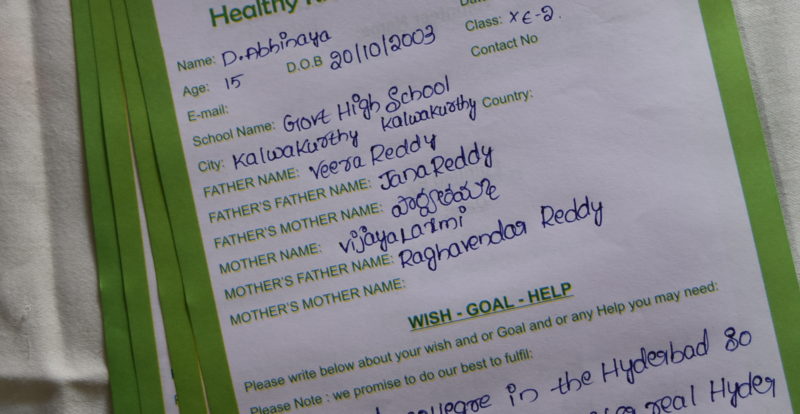 Healthy
Name: D.Abhinaya
Age: 15 D.O.B 20/10/2003 Class: X E-2.
E-mail: Contact No
School Name: Govt High School
City: Kalwakurthy Kalwakurthy Country:
FATHER NAME: Veera Reddy
FATHER'S FATHER NAME: Jana Reddy
FATHER'S MOTHER NAME:
MOTHER NAME: Vijaya Laxmi
MOTHER'S FATHER NAME: Raghavendar Reddy
MOTHER'S MOTHER NAME:
WISH - GOAL - HELP
Please write below about your wish and or Goal and or any Help you may need:
Please Note : we promise to do our best to fulfil:
in the Hyderbad so
real Hyder